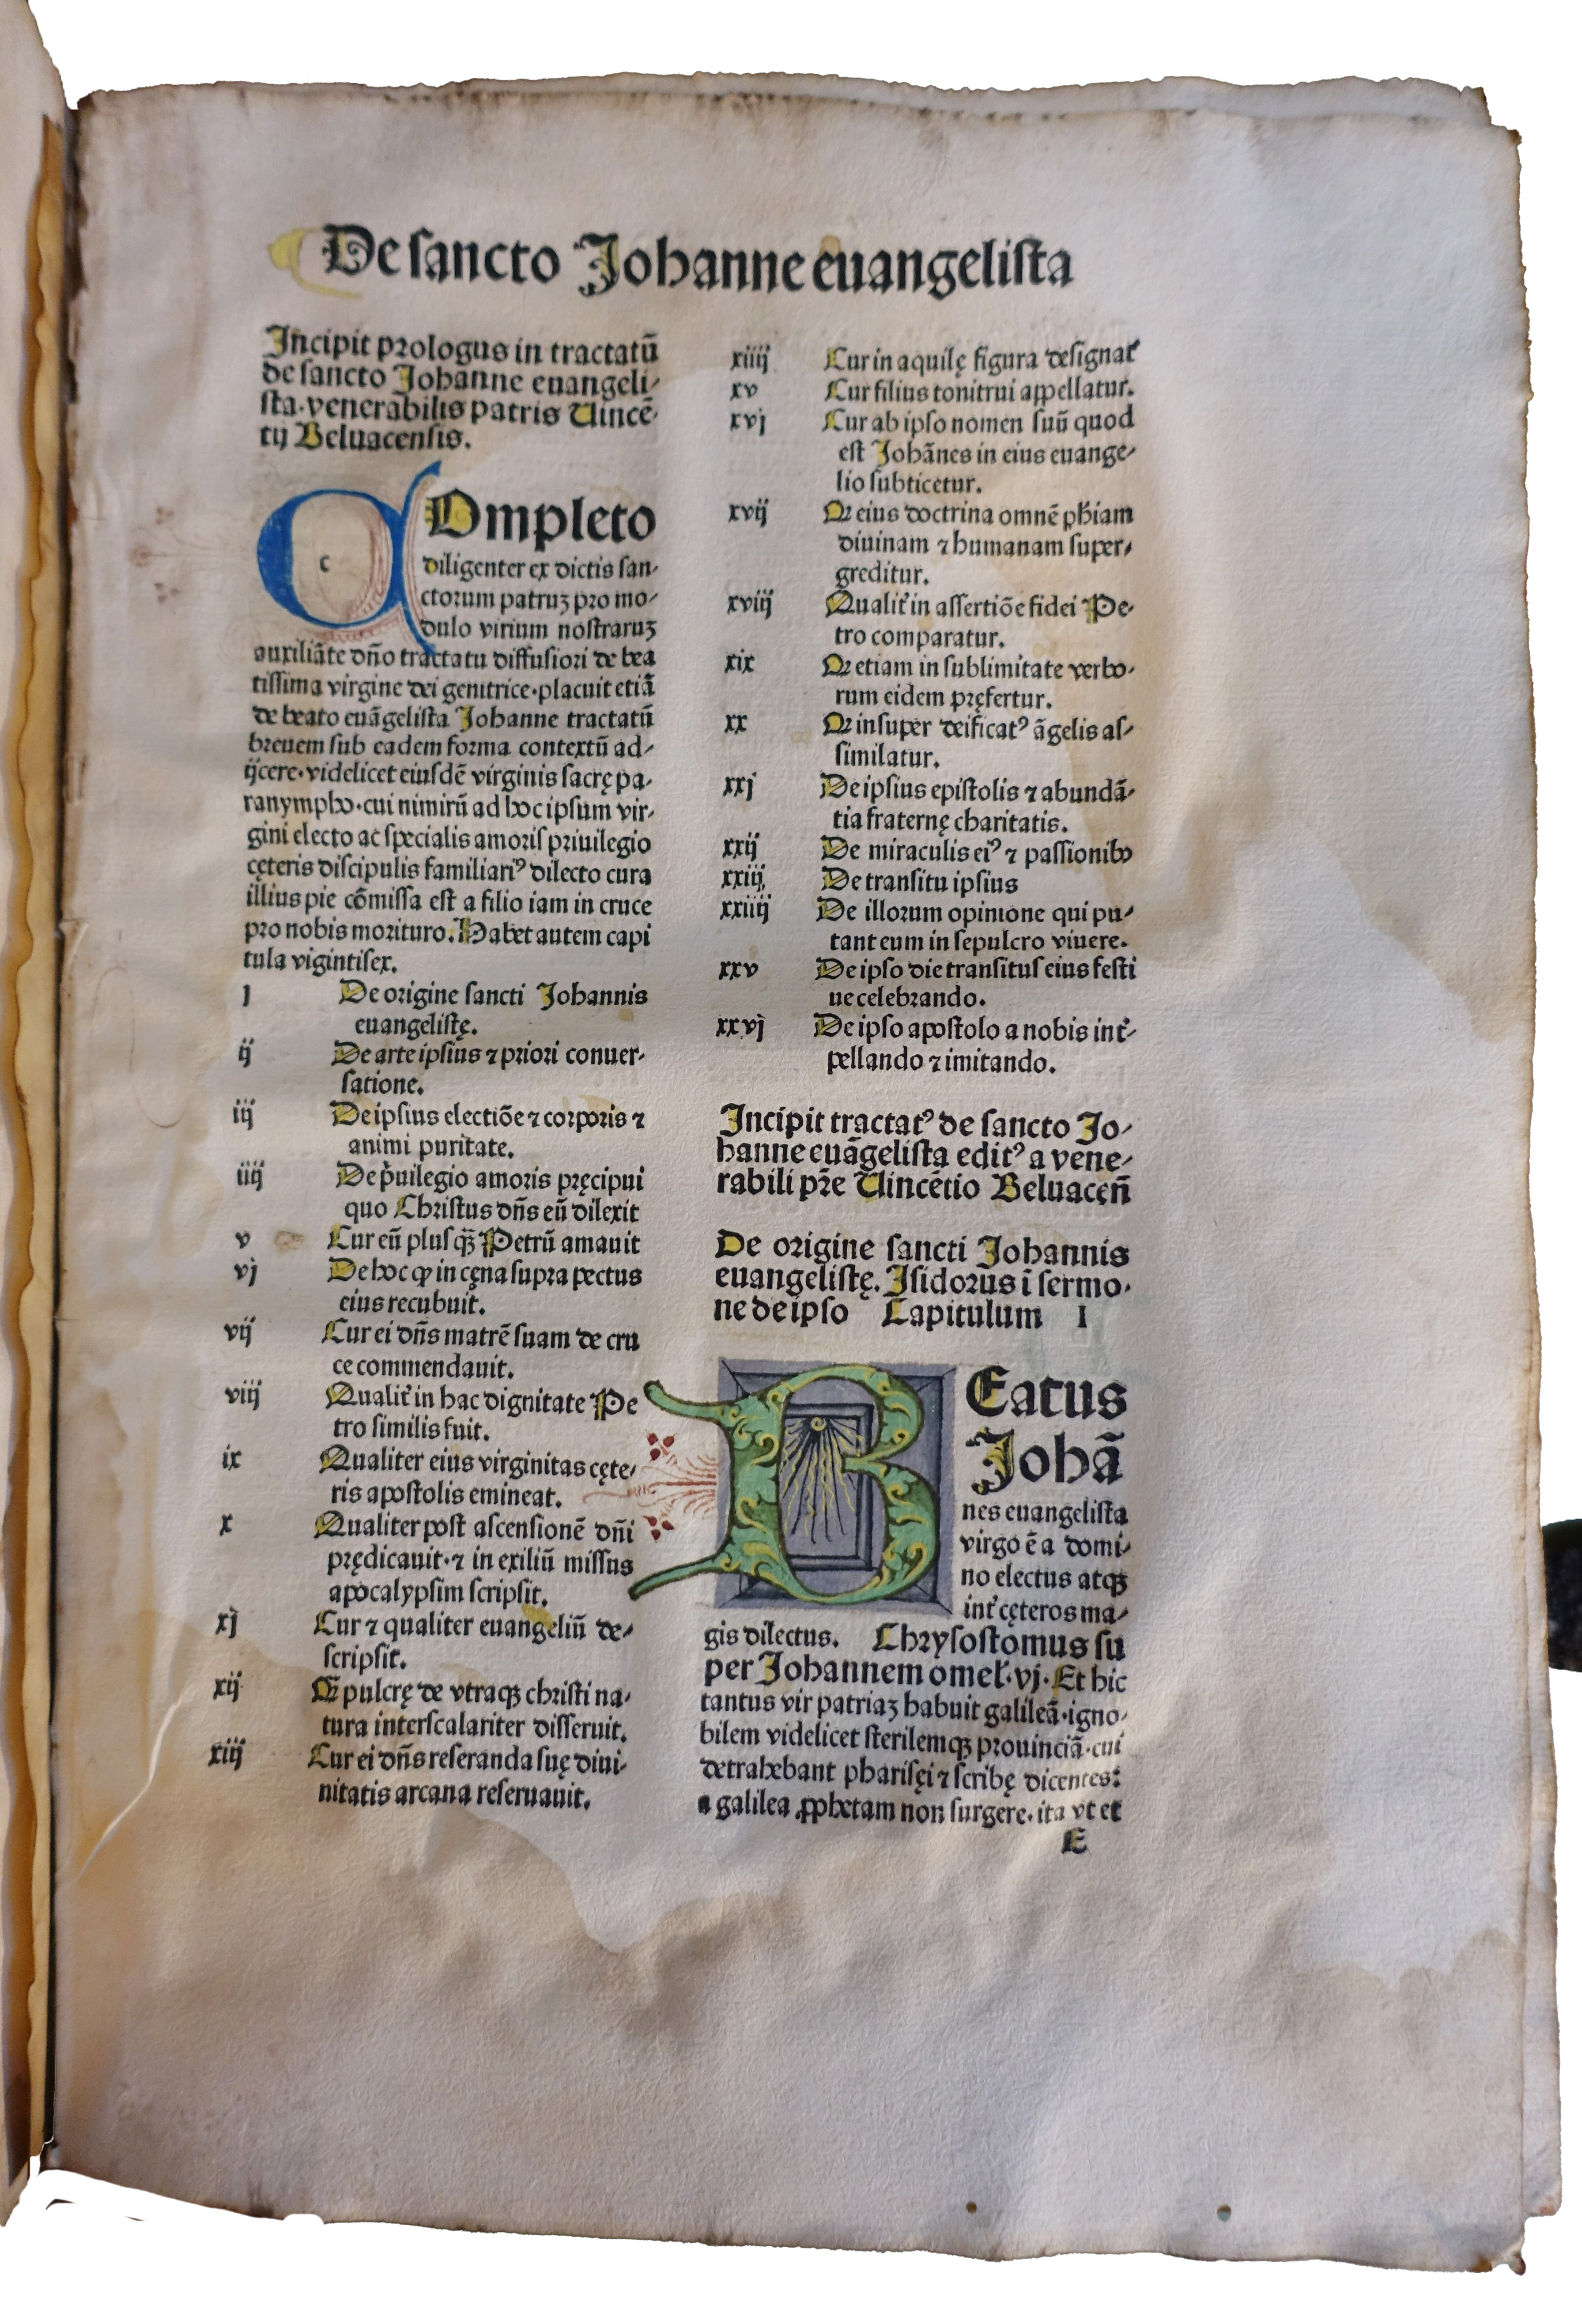 De sancto Johanne euangelista
Incipit prologus in tractatū
de sancto Johanne euangeli⸗
sta·venerabilis patris Uincē⸗
tij Beluacensis.
c
Ompleto
diligenter ex dictis san⸗
ctorum patruꝫ pro mo⸗
dulo virium nostraruꝫ
auxiliāte dño tractatu diffusiori de bea
tissima virgine dei genitrice·placuit etiā
de beato euāgelista Johanne tractatū
breuem sub eadem forma contextū ad⸗
ijcere·videlicet eiusdē virginis sacrę pa⸗
ranympho·cui nimirū ad hoc ipsum vir⸗
gini electo ac specialis amoris priuilegio
cęteris discipulis familiariꝰ dilecto cura
illius pie cōmissa est a filio iam in cruce
pro nobis morituro. Habet autem capi
tula vigintisex.
I De origine sancti Johannis
euangelistę.
ij De arte ipsius ⁊ priori conuer⸗
satione.
iij De ipsius electiōe ⁊ corporis ⁊
animi puritate.
iiij De p̄uilegio amoris pręcipui
quo Christus dñs eū dilexit
v Cur eū plusꝗ̄ Petrū amauit
vj De hoc ꝙ in cęna supra pectus
eius recubuit.
vij Cur ei dñs matrē suam de cru
ce commendauit.
viij Qualit̓ in hac dignitate Pe
tro similis fuit.
ix Qualiter eius virginitas cęte⸗
ris apostolis emineat.
x Qualiter post ascensionē dñi
prędicauit·⁊ in exiliū missus
apocalypsim scripsit.
xj Cur ⁊ qualiter euangeliū de⸗
scripsit.
xij Qꝫ pulcrę de vtraqꝫ christi na⸗
tura interscalariter disseruit.
xiij Cur ei dñs reseranda suę diui⸗
nitatis arcana reseruauit.
xiiij Cur in aquilę figura designat̓
xv Cur filius tonitrui appellatur.
xvj Cur ab ipso nomen suū quod
est Johānes in eius euange⸗
lio subticetur.
xvij Qꝛ eius doctrina omnē phiam
diuinam ⁊ humanam super⸗
greditur.
xviij Qualit̓ in assertiōe fidei Pe⸗
tro comparatur.
xix Qꝛ etiam in sublimitate verbo⸗
rum eidem pręfertur.
xx Qꝛ insuper deificatꝰ āgelis as⸗
similatur.
xxj De ipsius epistolis ⁊ abundā⸗
tia fraternę charitatis.
xxij De miraculis eiꝰ ⁊ passionibꝰ
xxiij. De transitu ipsius
xxiiij De illorum opinione qui pu⸗
tant eum in sepulcro viuere.
xxv De ipso die transitus eius festi
ue celebrando.
xxvj De ipso apostolo a nobis int̓⸗
pellando ⁊ imitando.
Incipit tractatꝰ de sancto Jo⸗
hanne euāgelista editꝰ a vene⸗
rabili pr̄e Uincētio Beluaceñ
De origine sancti Johannis
euangelistę. Isidorus ī sermo⸗
ne de ipso Capitulum I
B
Eatus
Johā
nes euangelista
virgo ē a domi⸗
no electus atqꝫ
int̓ cęteros ma⸗
gis dilectus. Chrysostomus su
per Johannem omel̓·vj·Et hic
tantus vir patriaꝫ habuit galileā·igno⸗
bilem videlicet sterilemqꝫ prouinciā·cui
detrahebant pharisęi ⁊ scribę dicentes:
a galilea ꝓphetam non surgere·ita vt et
E